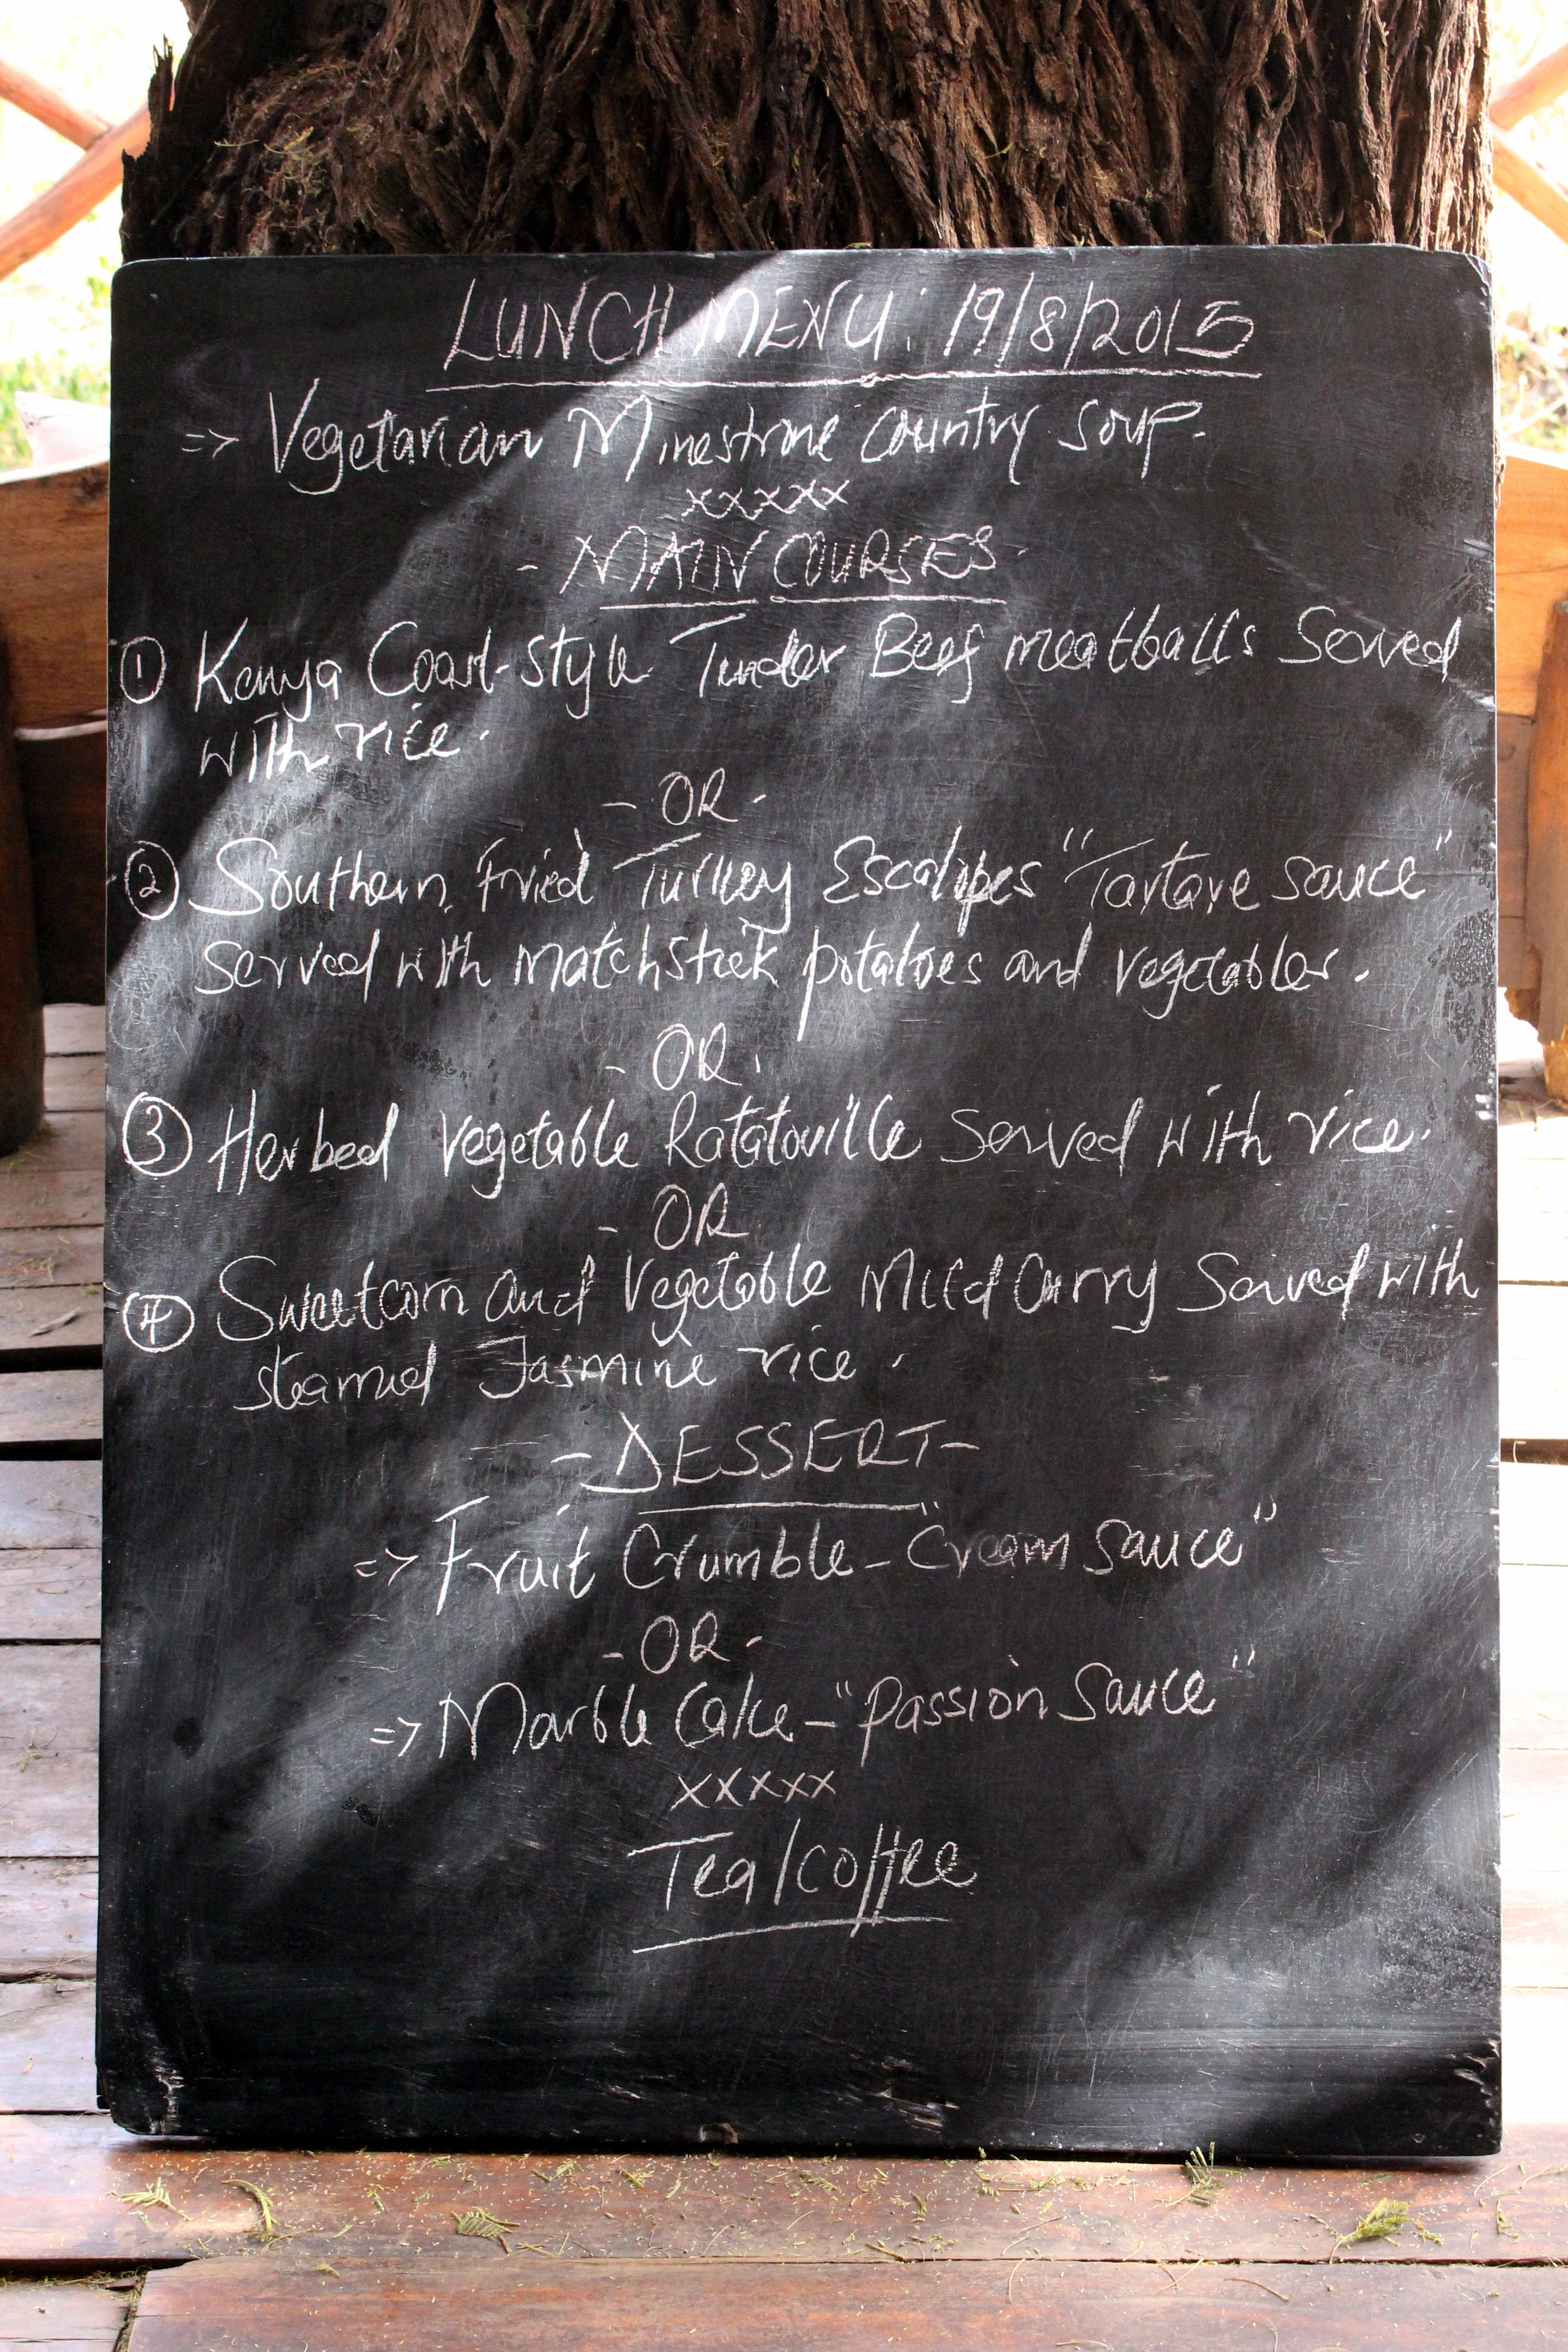 LUNCH MENU: 19/8/2015
=> Vegetarian Minestrone Country Soup.
xxxxx
- MAIN COURSES -
① Kenya Coast-style Tender Beef meatballs Served
with rice.
- OR -
② Southern Fried Turkey Escalopes "Tartare sauce"
Served with matchstick potatoes and vegetables.
- OR.
③ Herbed Vegetable Ratatouille Served with rice.
- OR
④ Sweetcorn and Vegetable Mild Curry Served with
steamed Jasmine rice.
- DESSERT -
=> Fruit Crumble - "Cream Sauce"
- OR -
=> Marble Cake - "Passion Sauce"
xxxxx
Tea/coffee